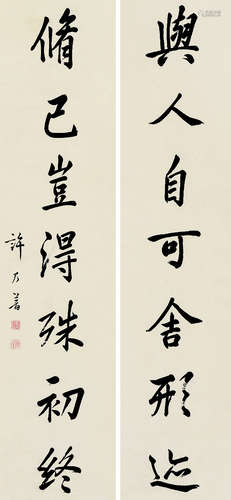 與人自可舍形迹
脩已豈得殊初終
許乃普